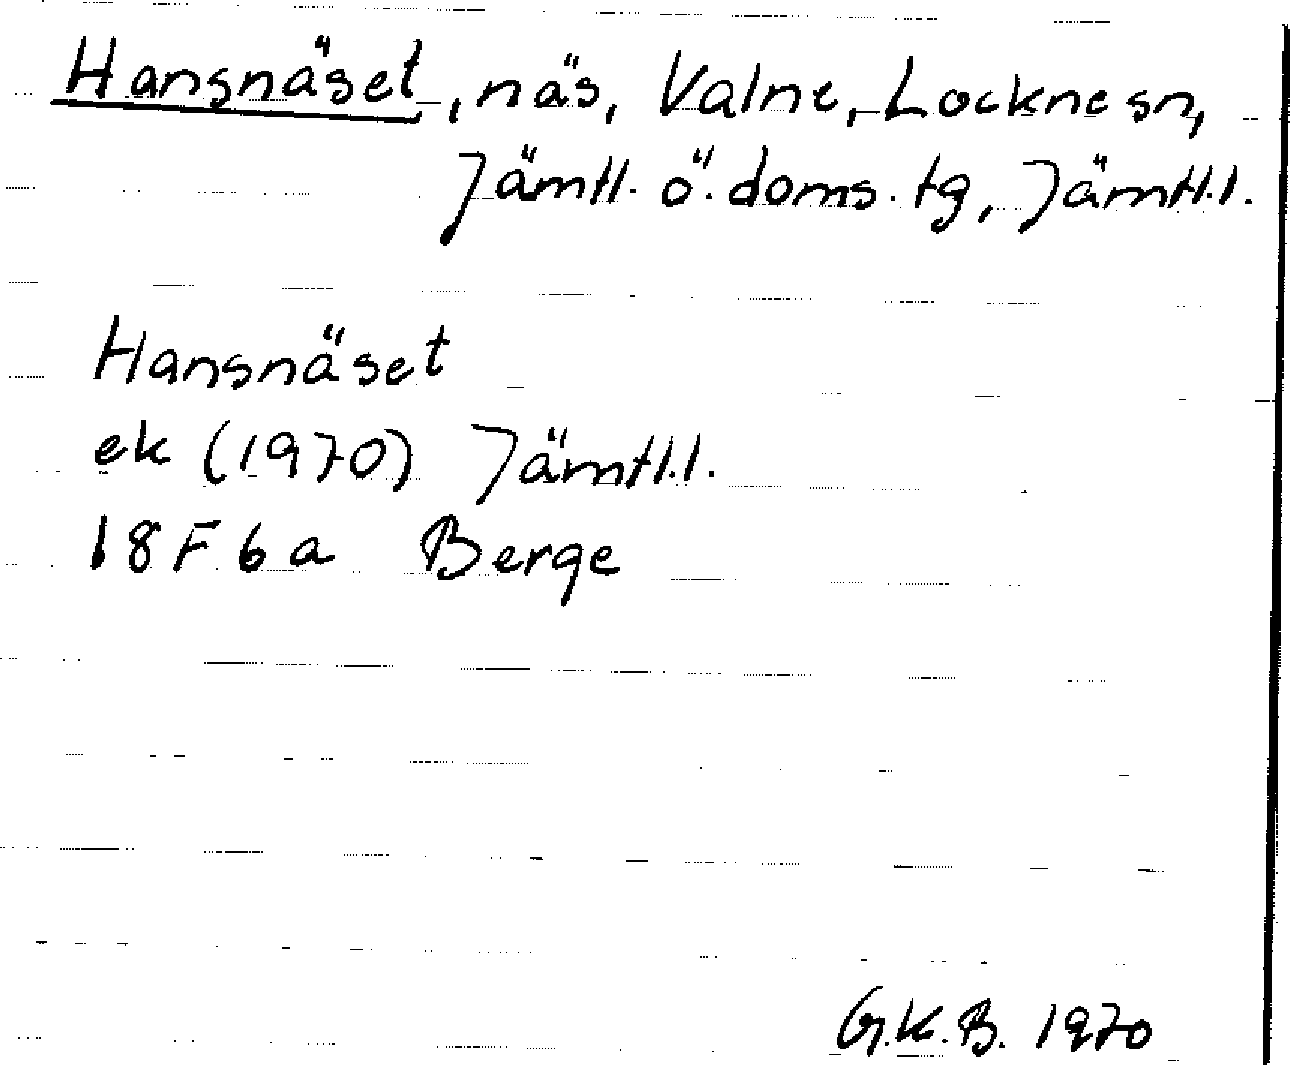 Hansnäset, näs, Valne, Lockne sn,
Jämtl. ö. doms. tg, Jämtl.l.
Hansnäset
ek (1970) Jämtl.l.
18 F 6 a Berge
G.K.B. 1970